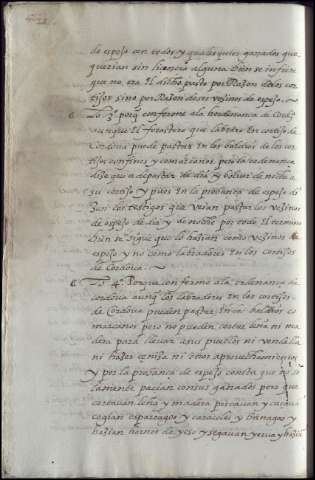 de espejo con todos y qualesquier ganados que
querian sin licencia alguna bien se infiere
que no era el dicho pasto por Razon de los cor
tijos sino por Razon de ser vezinos de espejo
Lo 3º porq conforme a la hordenança de Cordª
aunque el forastero que labrare en cortijo de
Cordova puede pastar en los baldios de los cor
tijos confines y comarcanos pero la ordenança
dize que a de pastar de dia y bolver de noche a
su cortijo y pues en la provança de espejo di
zen los testigos que veian pastar los vezinos
de espejo de dia y de noche por todo el termino
bien se sigue que lo hazian como vezinos de
espejo y no como labradores en los cortijos
de cordova
Lo 4º Porque conforme a la ordenança de
cordova aunq los labradores en los cortijos
de Cordova pueden pastar en los baldios co
marcanos pero no pueden cortar leña ni ma
dera para llevar a sus pueblos ni vendella
ni hazer ceniza ni otros aprovechamientos
y por la provança de espejo consta que no so
lamente pacian con sus ganados pero que
cortavan leña y madera pescavan y caçavan
cogian esparragos y caracoles y
hazian hornos de yeso y segavan yerva y hazian